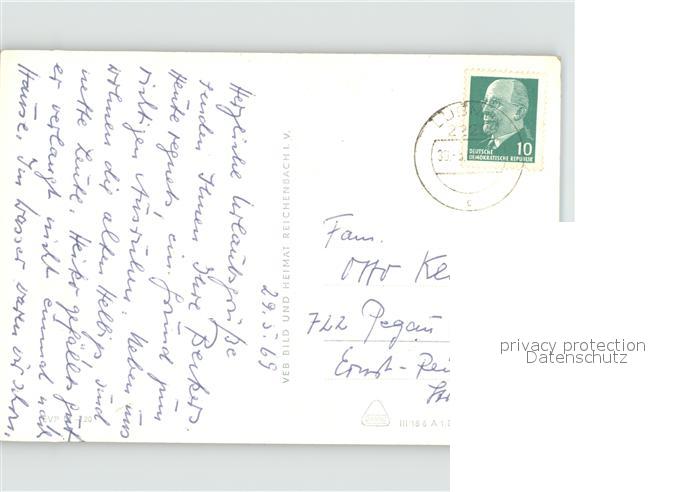 Herzliche Urlaubsgrüße
senden Ihnen Ihre Beckers.
Heute regnets, ein Grund zum
richtigen Ausruhen. Neben uns
wohnen die alten Helbigs sind
nette Leute. Heiko gefällts gut
er verlangt nicht einmal nach
Hause. Im Wasser waren wir schon,
29.5.69
VEB BILD UND HEIMAT REICHENBACH I. V.
10
DEUTSCHE
DEMOKRATISCHE REPUBLIK
Fam.
Otto
722 Pegau
Ernst-
III 18 6 A 1
privacy protection
Datenschutz